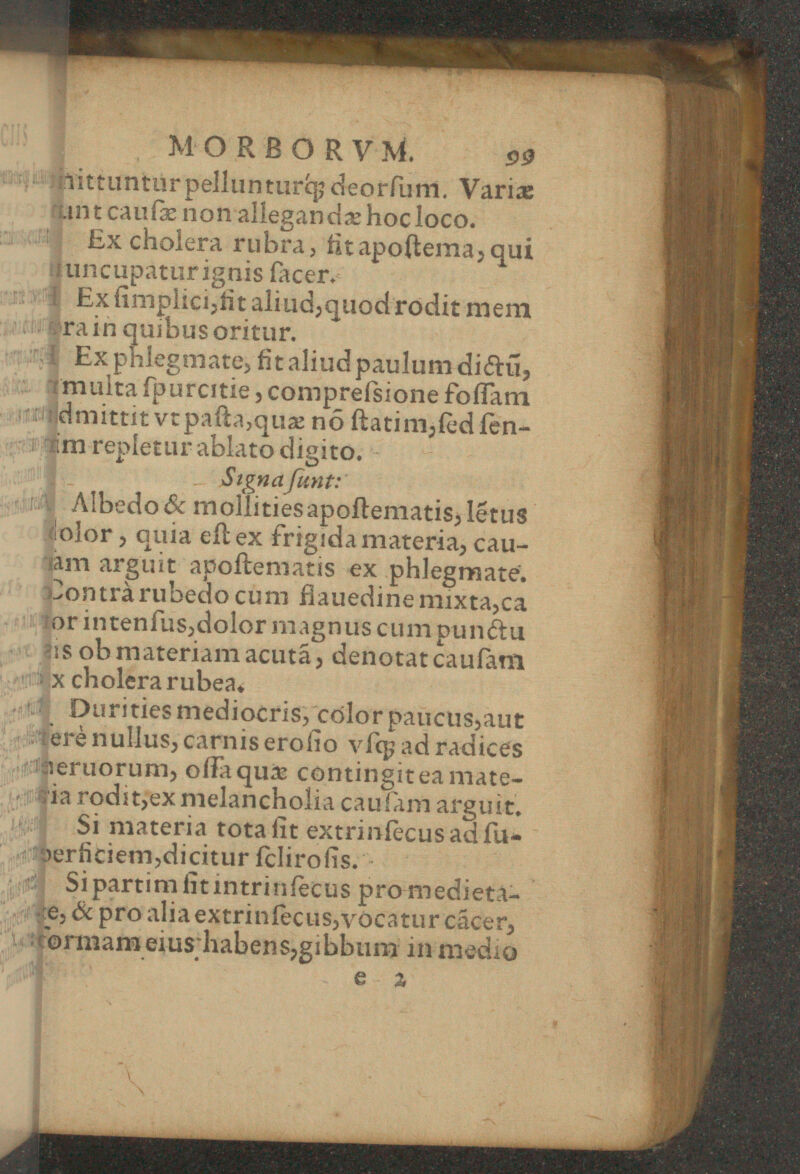 MORBORVM. 99
mittuntur pellunturq́; deorſum. Variæ
ſunt cauſæ non allegandæ hoc loco.
Ex cholera rubra, fit apoſtema, qui
nuncupatur ignis ſacer.
Ex ſimplici, fit aliud, quod rodit mem
bra in quibus oritur.
Ex phlegmate, fit aliud paulum dictũ,
multa ſpurcitie, compreſsione foſſam
admittit vt paſta, quæ nõ ſtatim, ſed ſen-
ſim repletur ablato digito.
Signa ſunt:
Albedo & mollities apoſtematis, lẽtus
dolor, quia eſt ex frigida materia, cau-
ſam arguit apoſtematis ex phlegmate.
Contrà rubedo cùm flauedine mixta, ca
lor intenſus, dolor magnus cum punctu
ris ob materiam acutã, denotat cauſam
ex cholera rubea.
Durities mediocris, color paucus, aut
ferè nullus, carnis eroſio vſq; ad radices
neruorum, oſſa quæ contingit ea mate-
ria rodit, ex melancholia cauſam arguit.
Si materia tota fit extrinſecus ad ſu-
perficiem, dicitur ſcliroſis.
Si partim fit intrinſecus pro medieta-
te, & pro alia extrinſecus, vocatur cãcer,
formam eius habens, gibbum in medio
e 2